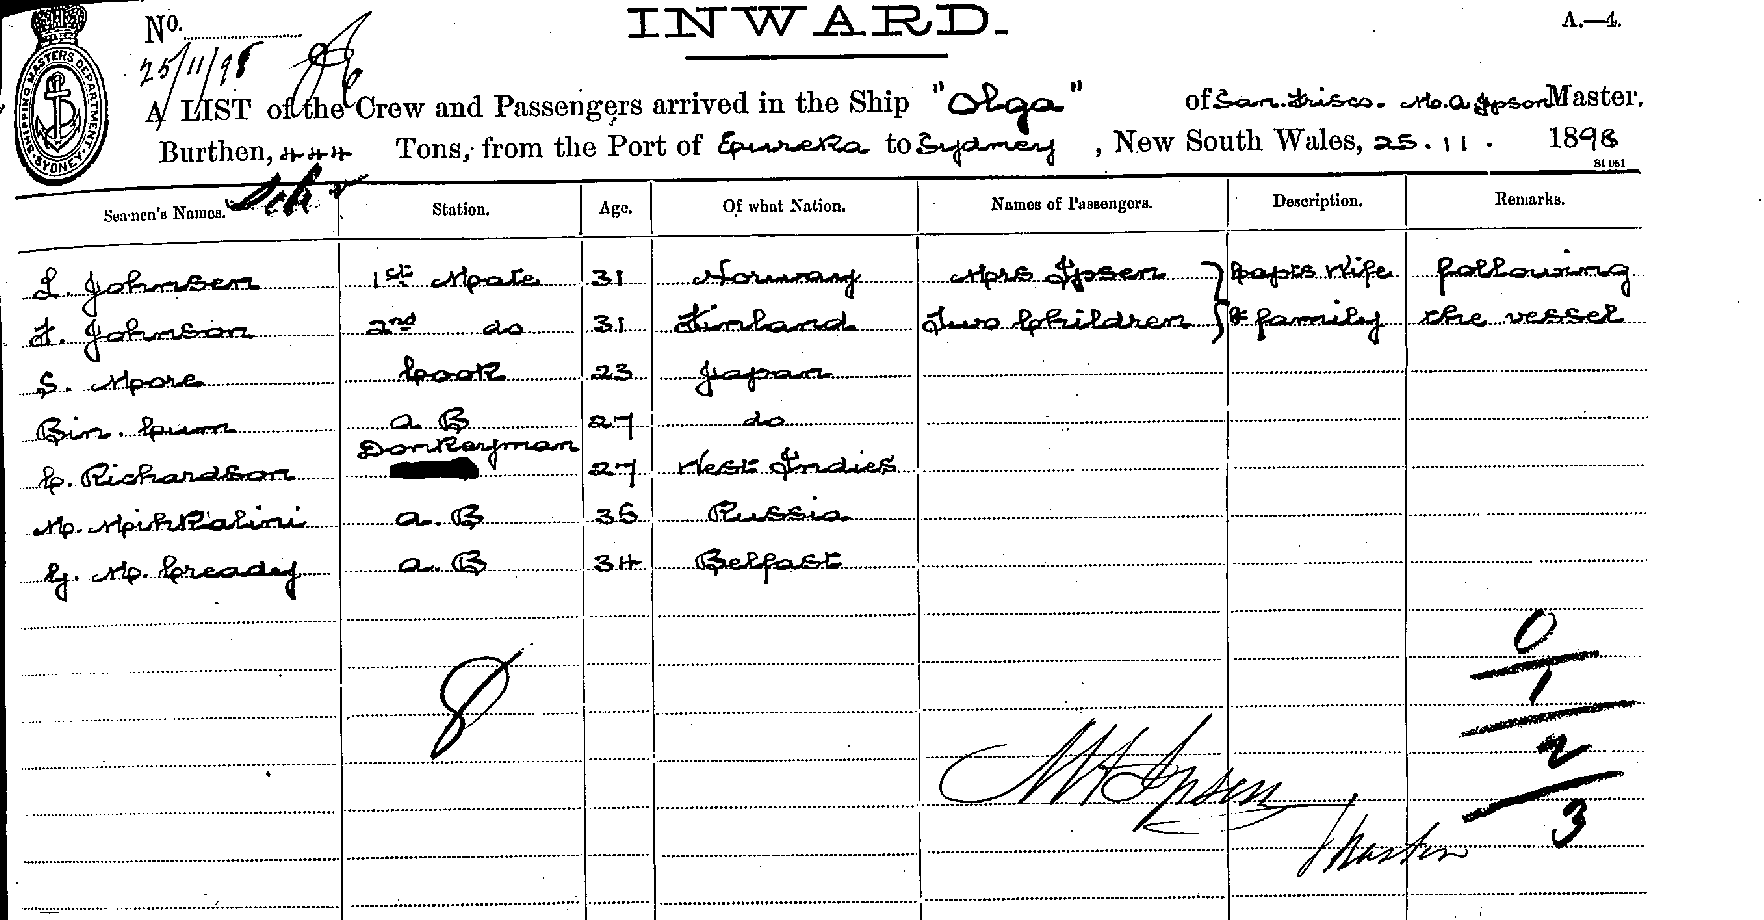 INWARD.
A.—4.
No.
25/11/98
SHIPPING MASTERS DEPARTMENT SYDNEY
A LIST of the Crew and Passengers arrived in the Ship "Olga" of San. Frisco. M. A. Ipson Master.
Burthen, 444 Tons, from the Port of Eureka to Sydney, New South Wales, 25.11. 1898
81 051
Seamen's Names. Station. Age. Of what Nation. Names of Passengers. Description. Remarks.
L. Johnsen 1st Mate 31 Norway Mrs Ipsen Capts Wife following
F. Johnson 2nd do 31 Finland Two Children & family the vessel
S. More Cook 23 Japan
Bin. Cum a. B 27 do
Donkeyman
C. Richardson 27 West Indies
M. Mikkalini a. B 35 Russia
G. Mc. Cready a. B 34 Belfast
0
8 1
2
Ipsen
3
Master